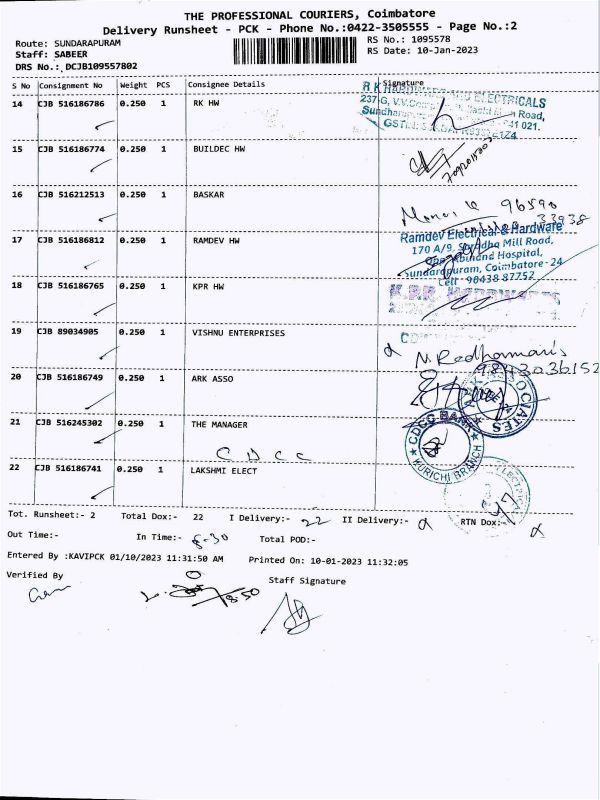 THE PROFESSIONAL COURIERS, Coimbatore
Delivery Runsheet - PCK - Phone No.:0422-3505555 - Page No.:2
Route: SUNDARAPURAM
RS No.: 1095578
Staff: SABEER
RS Date: 10-Jan-2023
DRS No.: DCJB109557802
S No Consignment No Weight PCS Consignee Details Signature
14 CJB 516186786 0.250 1 RK HW
R K HARDWARE AND ELECTRICALS
15 CJB 516186774 0.250 1 BUILDEC HW
16 CJB 516212513 0.250 1 BASKAR
96590
33938
17 CJB 516186812 0.250 1 RAMDEV HW
Ramdev Electrical & Hardware
170 A/9, Saradha Mill Road,
Opp. Abinand Hospital,
Sundarapuram, Coimbatore - 24
Cell : 98438 87752
18 CJB 516186765 0.250 1 KPR HW
19 CJB 89034905 0.250 1 VISHNU ENTERPRISES
20 CJB 516186749 0.250 1 ARK ASSO
21 CJB 516245302 0.250 1 THE MANAGER
CDCC
CDCC BANK
KURICHI BRANCH
22 CJB 516186741 0.250 1 LAKSHMI ELECT
Tot. Runsheet:- 2 Total Dox:- 22 I Delivery:- 22 II Delivery:- RTN Dox:-
Out Time:- In Time:- 8-30 Total POD:-
Entered By :KAVIPCK 01/10/2023 11:31:50 AM Printed On: 10-01-2023 11:32:05
Verified By
Staff Signature